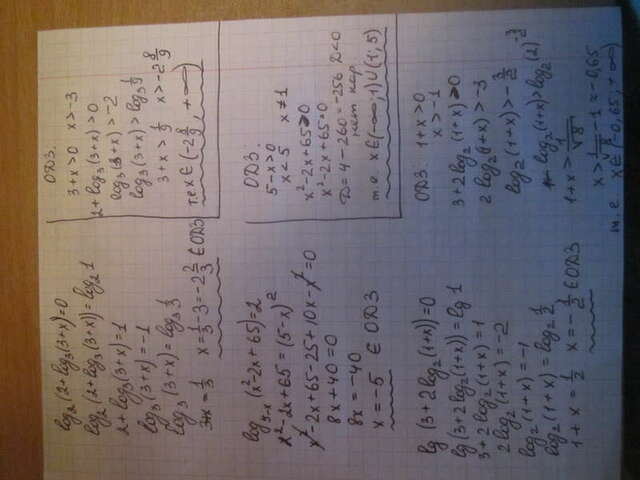 log₂(2+log₃(3+x))=0
log₂(2+log₃(3+x))=log₂1
2+log₃(3+x)=1
log₃(3+x)=-1
log₃(3+x)=log₃ 1/3
3+x=1/3 x=1/3-3=-2 2/3 ∈ ОДЗ
ОДЗ.
3+x>0 x>-3
2+log₃(3+x)>0
log₃(3+x)>-2
log₃(3+x)>log₃ 1/9
3+x>1/9 x>-2 8/9
т.е x∈(-2 8/9, +∞)
log₅₋ₓ(x²-2x+65)=2
x²-2x+65=(5-x)²
x²-2x+65-25+10x-x²=0
8x+40=0
8x=-40
x=-5 ∈ ОДЗ
ОДЗ.
5-x>0
x<5 x≠1
x²-2x+65>0
x²-2x+65=0
D=4-260=-256 D<0
нет кор
т.е. x∈(-∞;1)∪(1;5)
lg(3+2log₂(1+x))=0
lg(3+2log₂(1+x))=lg 1
3+2log₂(1+x)=1
2log₂(1+x)=-2
log₂(1+x)=-1
log₂(1+x)=log₂ 1/2
1+x=1/2 x=-1/2 ∈ ОДЗ
ОДЗ: 1+x>0
x>-1
3+2log₂(1+x)>0
2log₂(1+x)>-3
log₂(1+x)>-3/2
log₂(1+x)>log₂(2)^(-3/2)
1+x>1/√8
x>1/√8-1≈-0,65
т.е. x∈(-0,65; +∞)